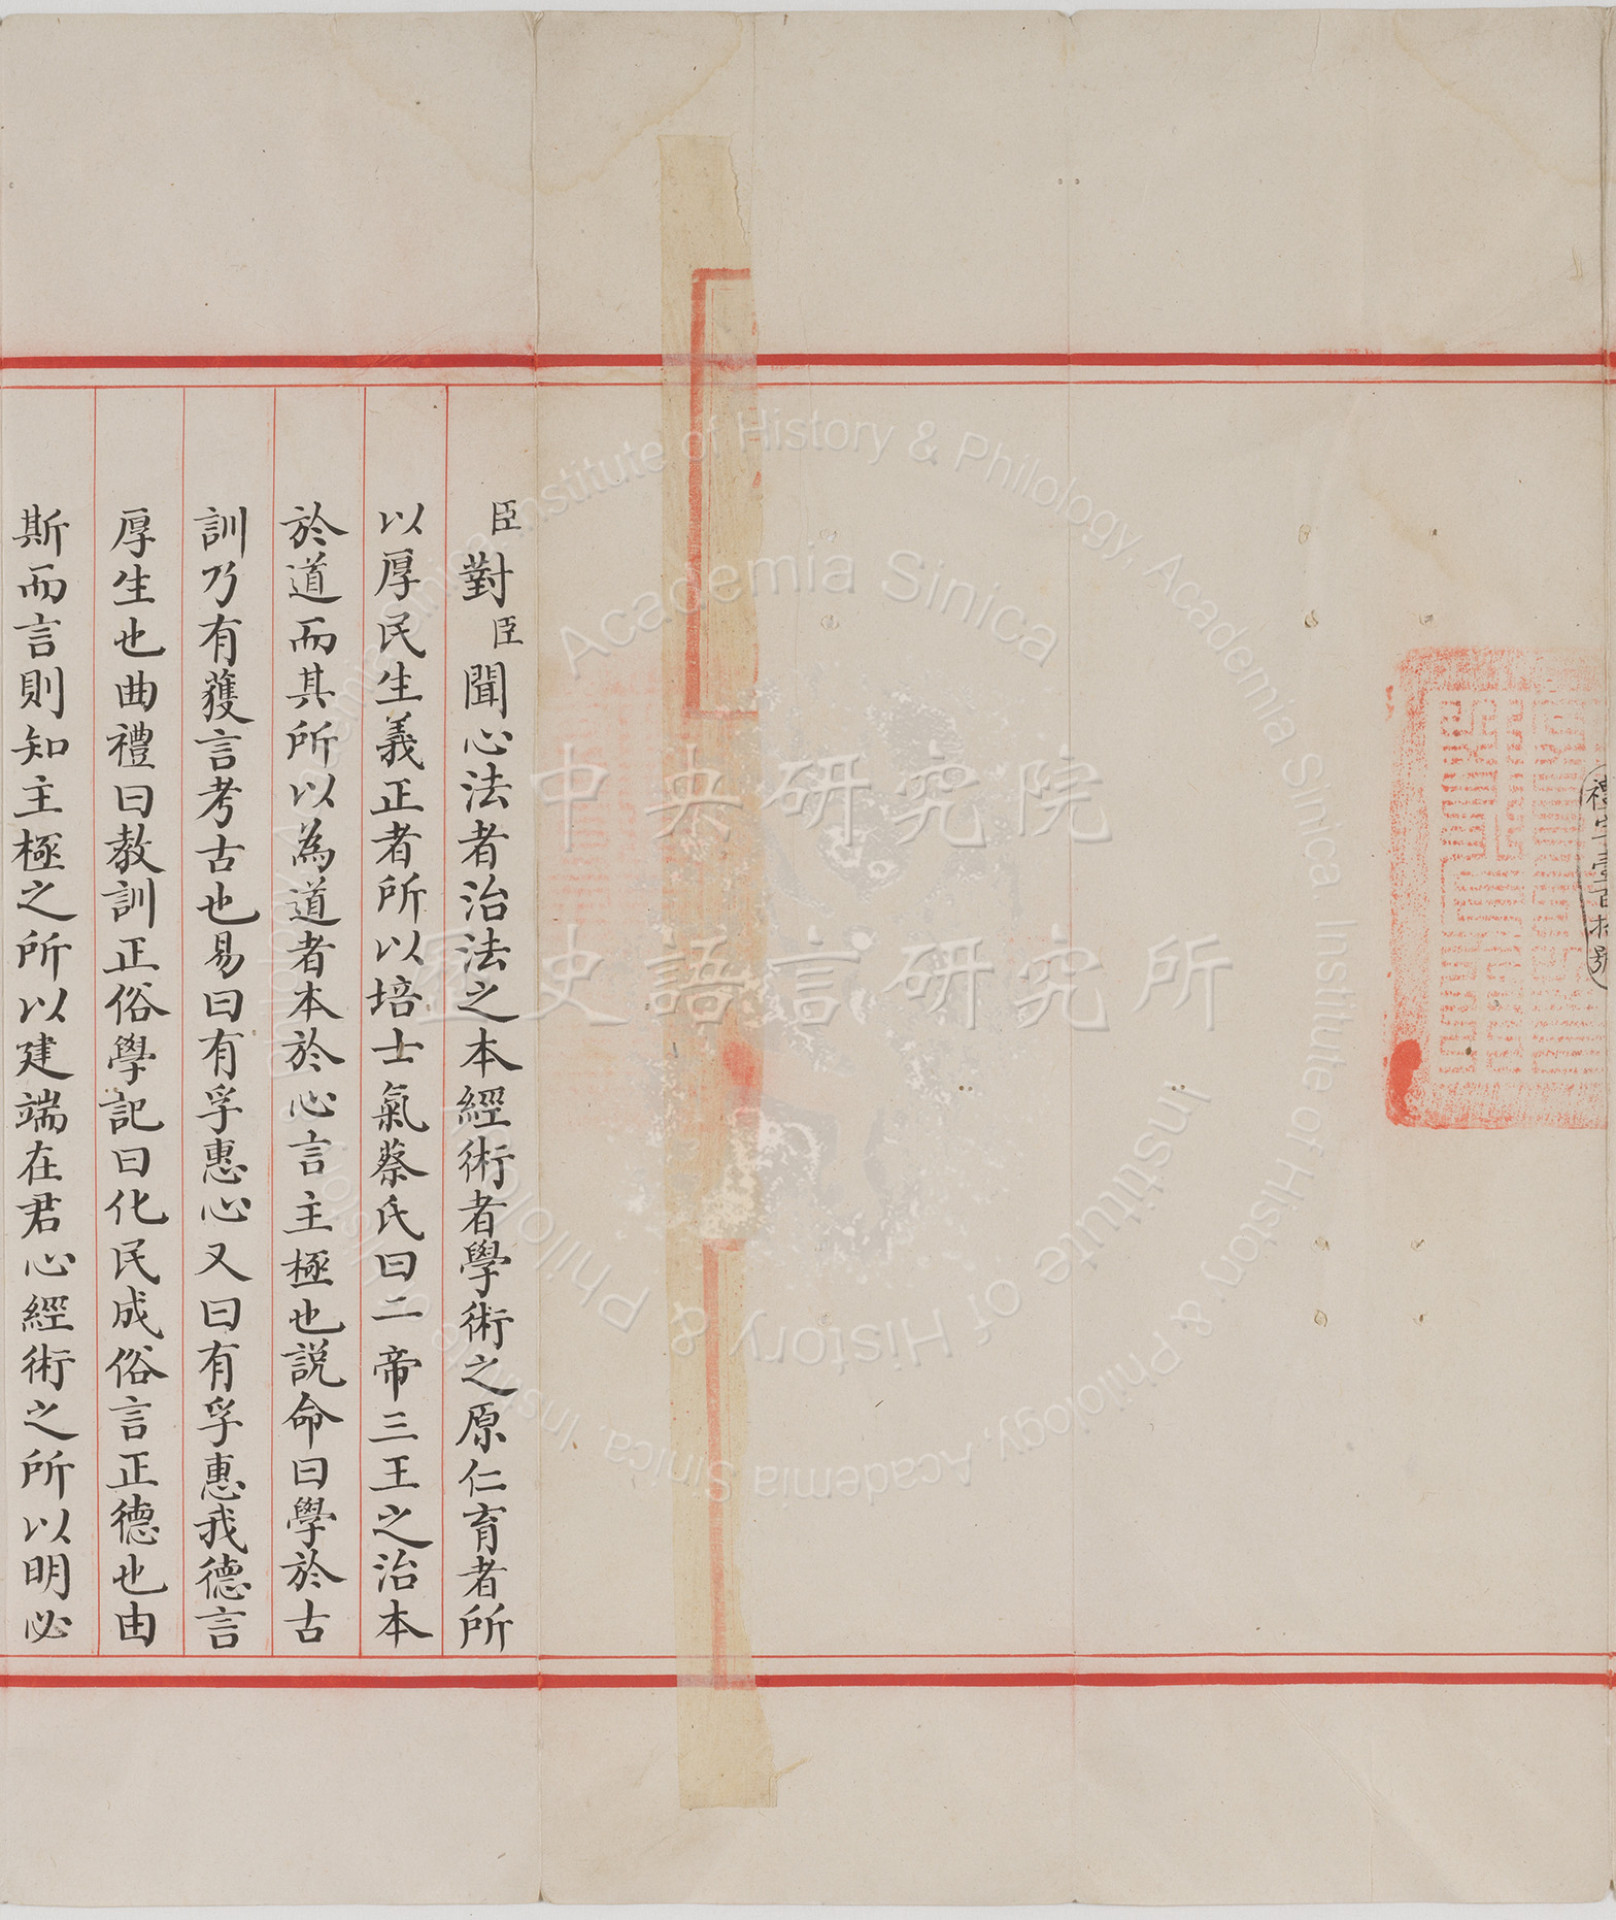 禮字壹百拾號
臣對臣聞心法者治法之本經術者學術之原仁育者所
以厚民生義正者所以培士氣蔡氏曰二帝三王之治本
於道而其所以為道者本於心言主極也説命曰學於古
訓乃有獲言考古也易曰有孚惠心又曰有孚惠我德言
厚生也曲禮曰教訓正俗學記曰化民成俗言正德也由
斯而言則知主極之所以建端在君心經術之所以明必
中央研究院
歷史語言研究所
Institute of History & Philology, Academia Sinica